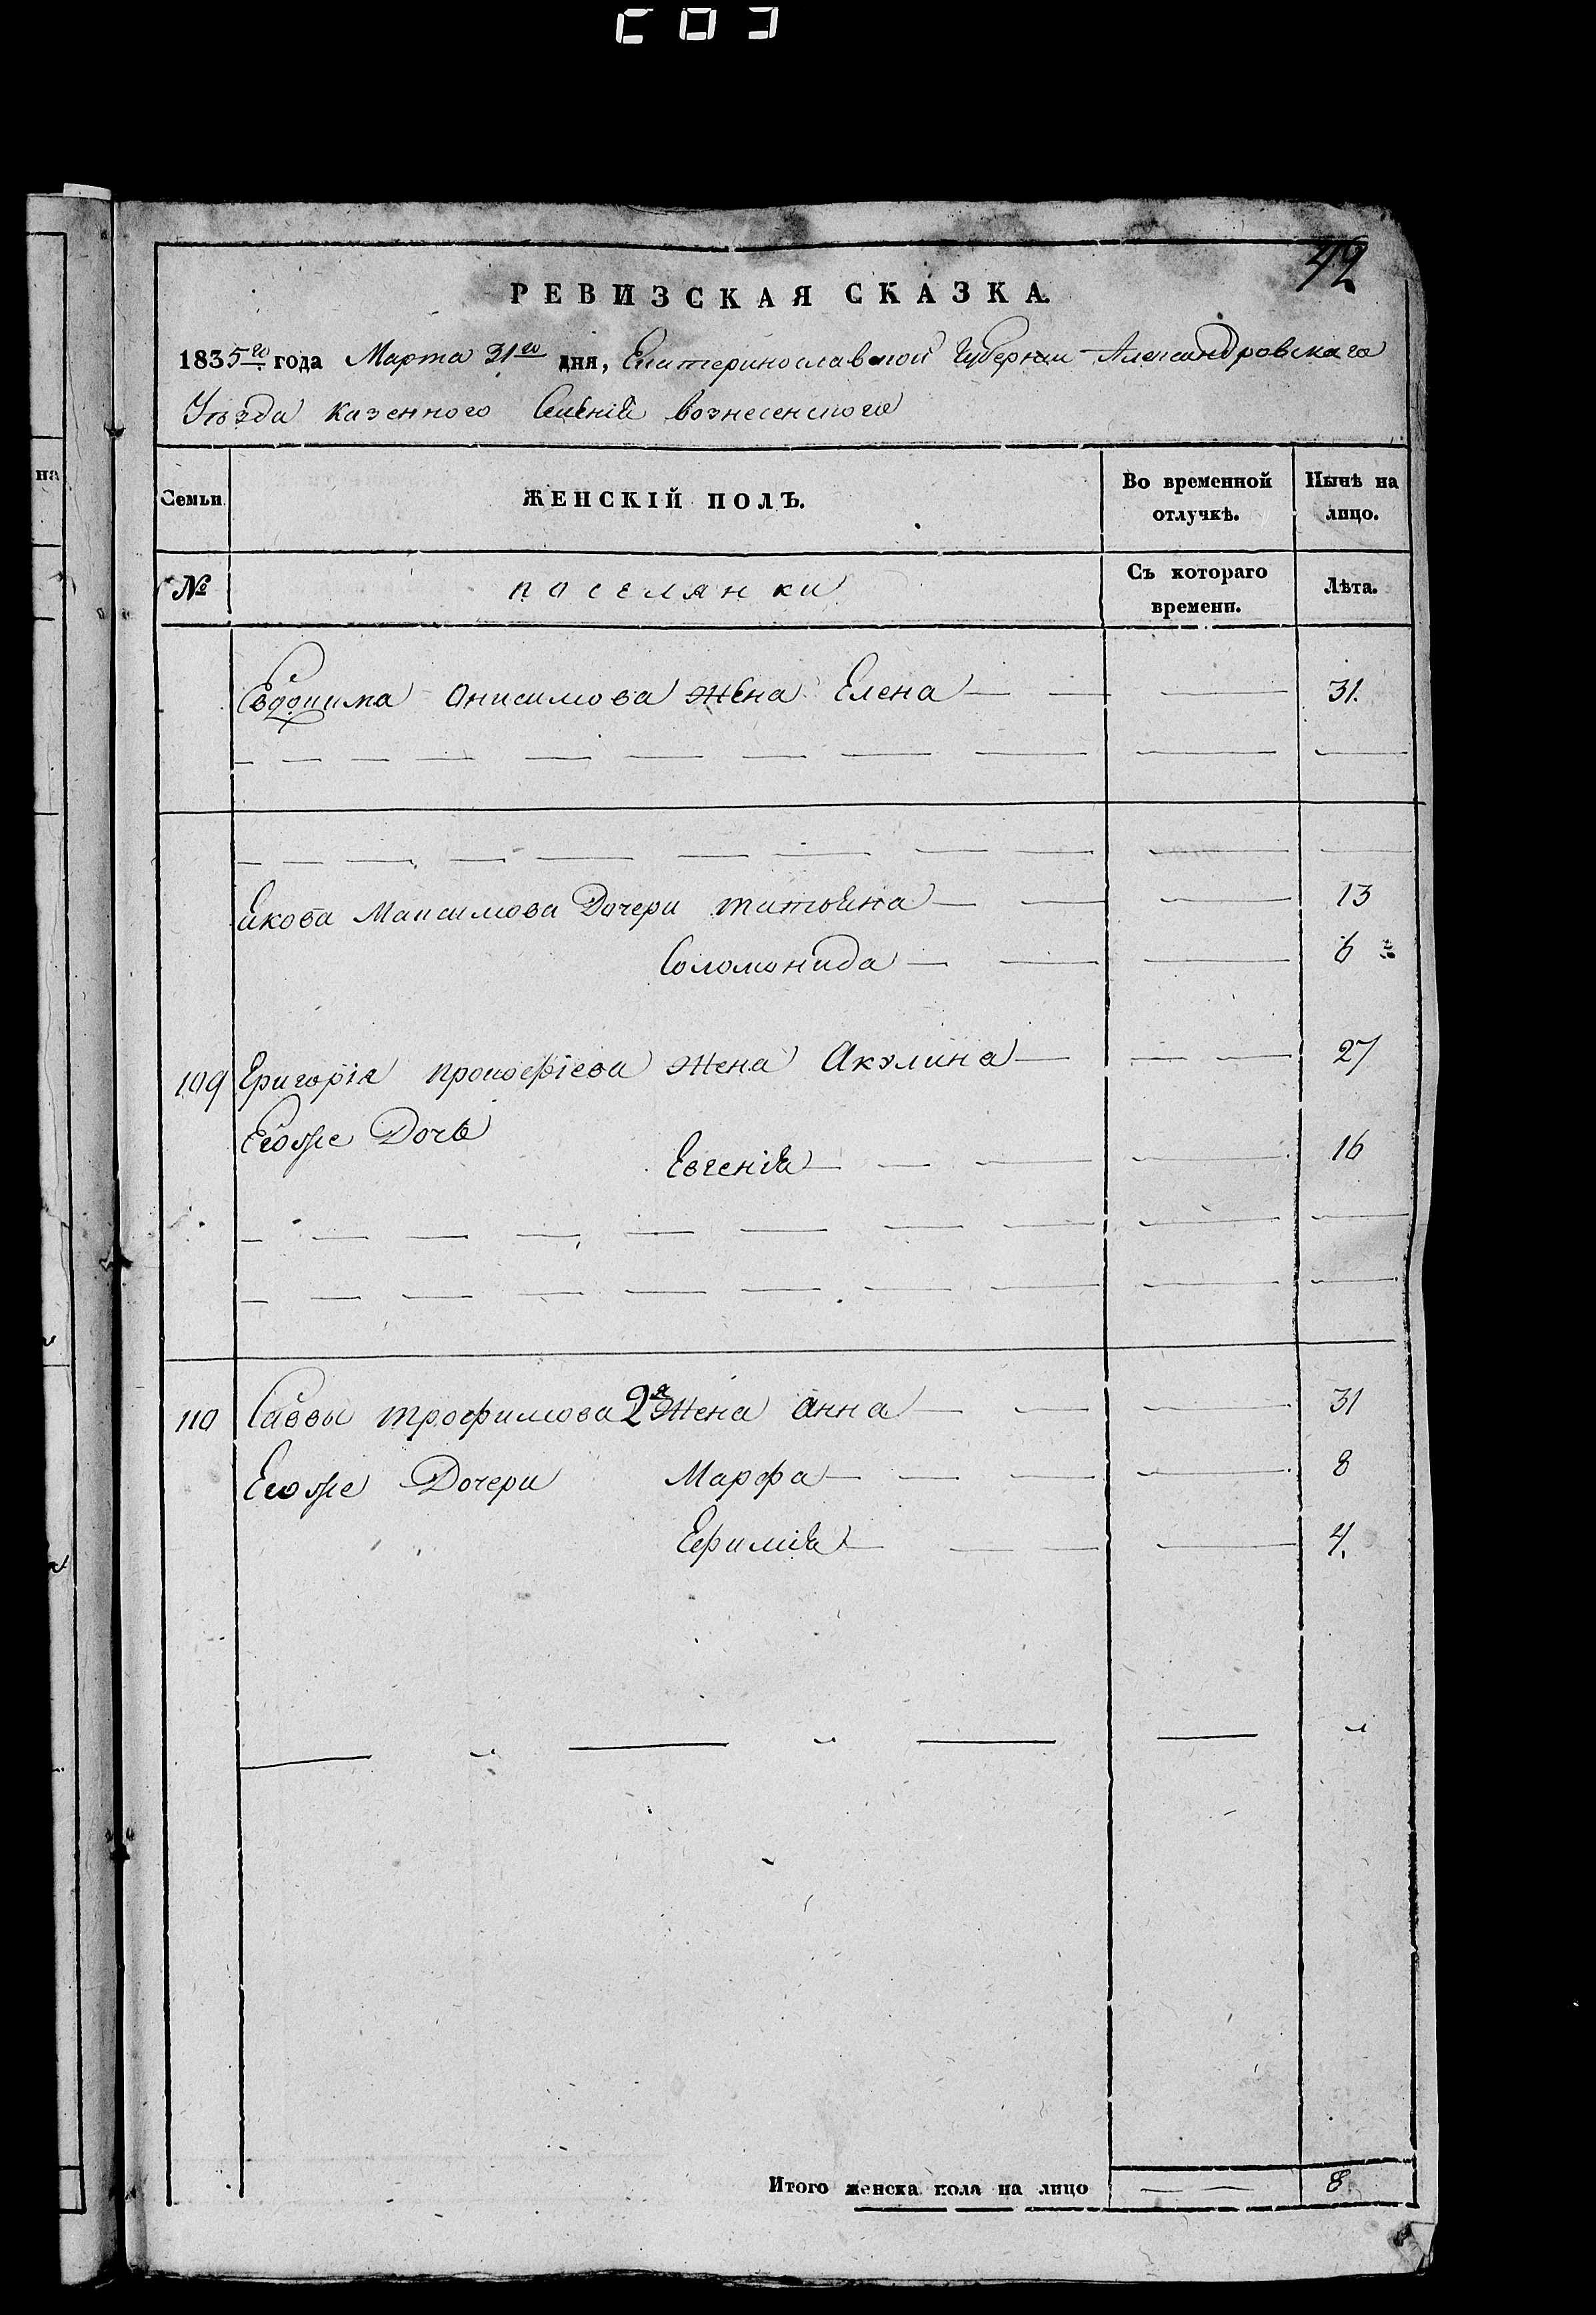 42
РЕВИЗСКАЯ СКАЗКА.
1835го года Марта 31го дня, Екатеринославской Губернии Александровскаго
Уѣзда казенного Селенія вознесенского
Семьи
ЖЕНСКІЙ ПОЛЪ.
Во временной отлучкѣ.
Нынѣ на лицо.
№
поселянки
Съ котораго времени.
Лѣта.
Евдокима Онисимова жена Елена 31.
Якова Максимова Дочери татьяна 13
Соломонида 6
109 Григорія прокофіева жена Акулина 27
Егоже Дочь
Евгенія 16
110 Саввы трофимова 2я жена анна 31
Егоже Дочери Марфа 8
Ефимія 4.
Итого женска пола на лицо 8